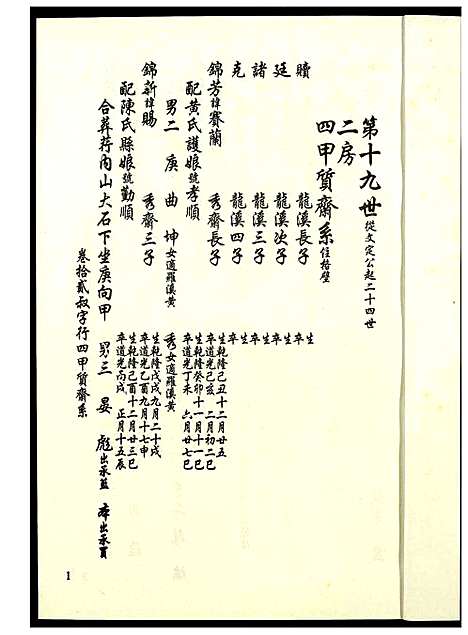 第十九世從文定公起二十四世
二房
四甲質齋系住格壁
贖 龍溪長子 生 卒
廷 龍溪次子 生 卒
諸 龍溪三子 生 卒
克 龍溪四子 生 卒
錦芳諱賽蘭 秀齋長子 生乾隆己丑十二月廿五 卒道光己亥十二月初二巳
配黃氏護娘號孝順 生乾隆癸卯十一月十一巳 卒道光丁未 六月廿七巳
男二 庚 曲 坤女適羅溪黃 秀女適羅溪黃
錦新諱賜 秀齋三子 生乾隆戊戌九月二十戌 卒道光乙酉九月十七申
配陳氏縣娘號勤順 生乾隆己酉十二月廿三巳 卒道光丙戌 正月十五辰
合葬荇內山大石下坐庚向甲 男三 晏 彪出承
卷拾貳叔字行四甲質齋系
1